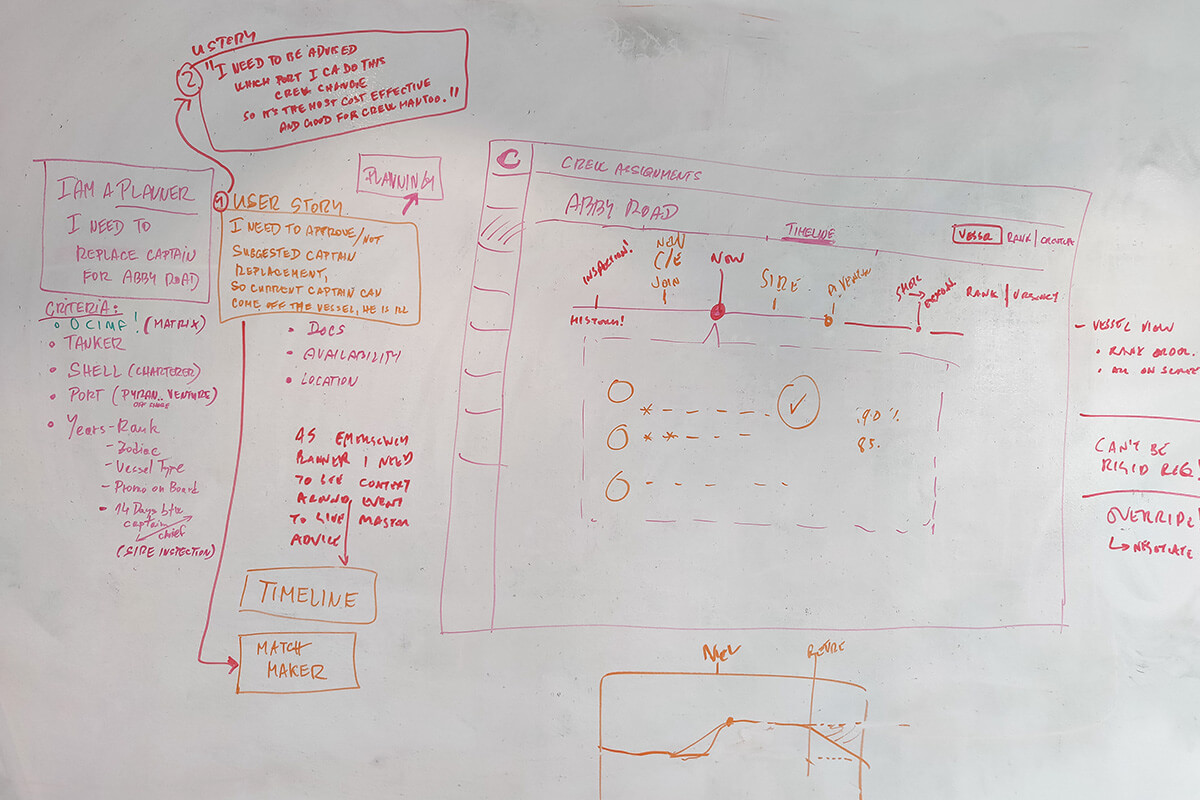 USTORY
2
"I NEED TO BE ADVISED
WHICH PORT I CA DO THIS
CREW CHANGE
SO IT'S THE MOST COST EFFECTIVE
AND GOOD FOR CREW MAN TOO."
I AM A PLANNER
I NEED TO
REPLACE CAPTAIN
FOR ABBY ROAD
CRITERIA:
• OCIMF! (MATRIX)
• TANKER
• SHELL (CHARTERER)
• PORT (PYRAN.. VENTURE)
• Years-Rank
- Zodiac
- Vessel Type
- Promo on Board
• 14 Days btw
captain
chief
(SIRE INSPECTION)
PLANNING
1 USER STORY
I NEED TO APPROVE/NOT
SUGGESTED CAPTAIN
REPLACEMENT,
SO CURRENT CAPTAIN CAN
COME OFF THE VESSEL, HE IS ILL
• DOCS
• AVAILABILITY
• LOCATION
AS EMERGENCY
PLANNER I NEED
TO SEE CONTEXT
AROUND EVENT
TO GIVE MASTER
ADVICE
TIMELINE
MATCH
MAKER
C
CREW ASSIGNMENTS
ABBY ROAD
TIMELINE
VESSEL RANK
INSPECTION!
NEW
C/E
JOIN
NOW
SIRE
SHELL
RANK | URGENCY
HISTORY!
90%
85.
- VESSEL VIEW
• RANK ORDER
CAN'T BE
RIGID REQ!
OVERRIDE!
↳ NEGOTIATE